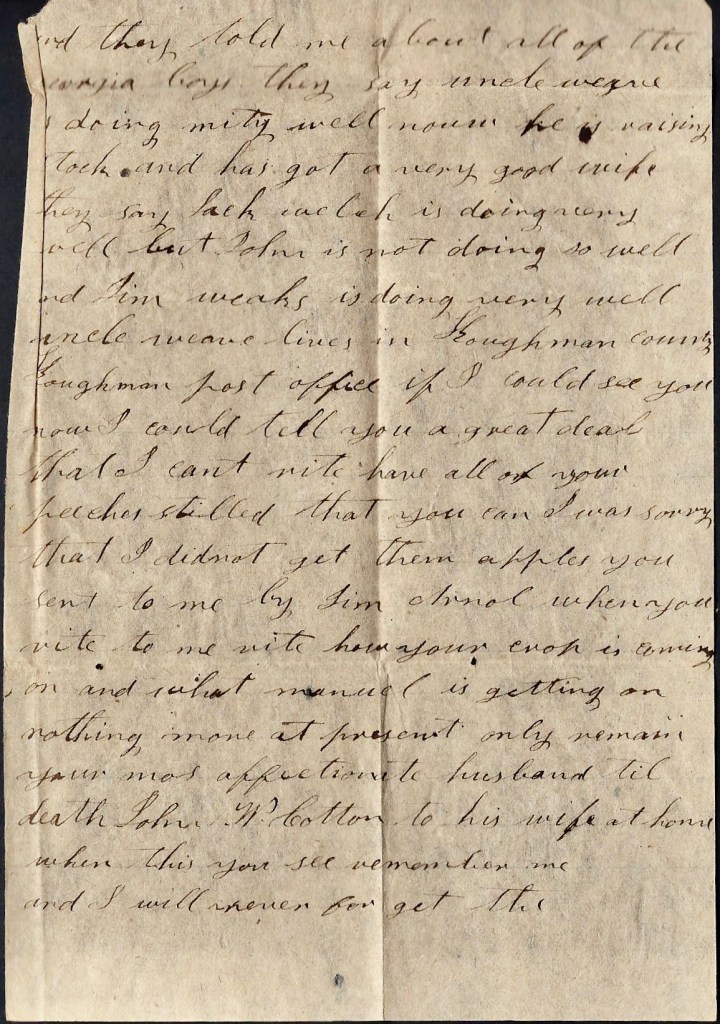 and they told me about all of the
georgia boys they say uncle weave
is doing mity well nouw he is raising
stock and has got a very good wife
they say Jack welch is doing very
well but John is not doing so well
and Jim weaks is doing very well
uncle weave lives in Koughman county
Koughman post office if I could see you
now I could tell you a great deal
that I cant rite have all of your
peeches stilled that you can I was sorry
that I didnot get them apples you
sent to me by Jim Arnol when you
rite to me rite how your crop is coming
on and what manuel is getting on
nothing more at present only remain
your mos affectionate husband til
death John W. Cotton to his wife at home
when this you see remember me
and I will never for get the